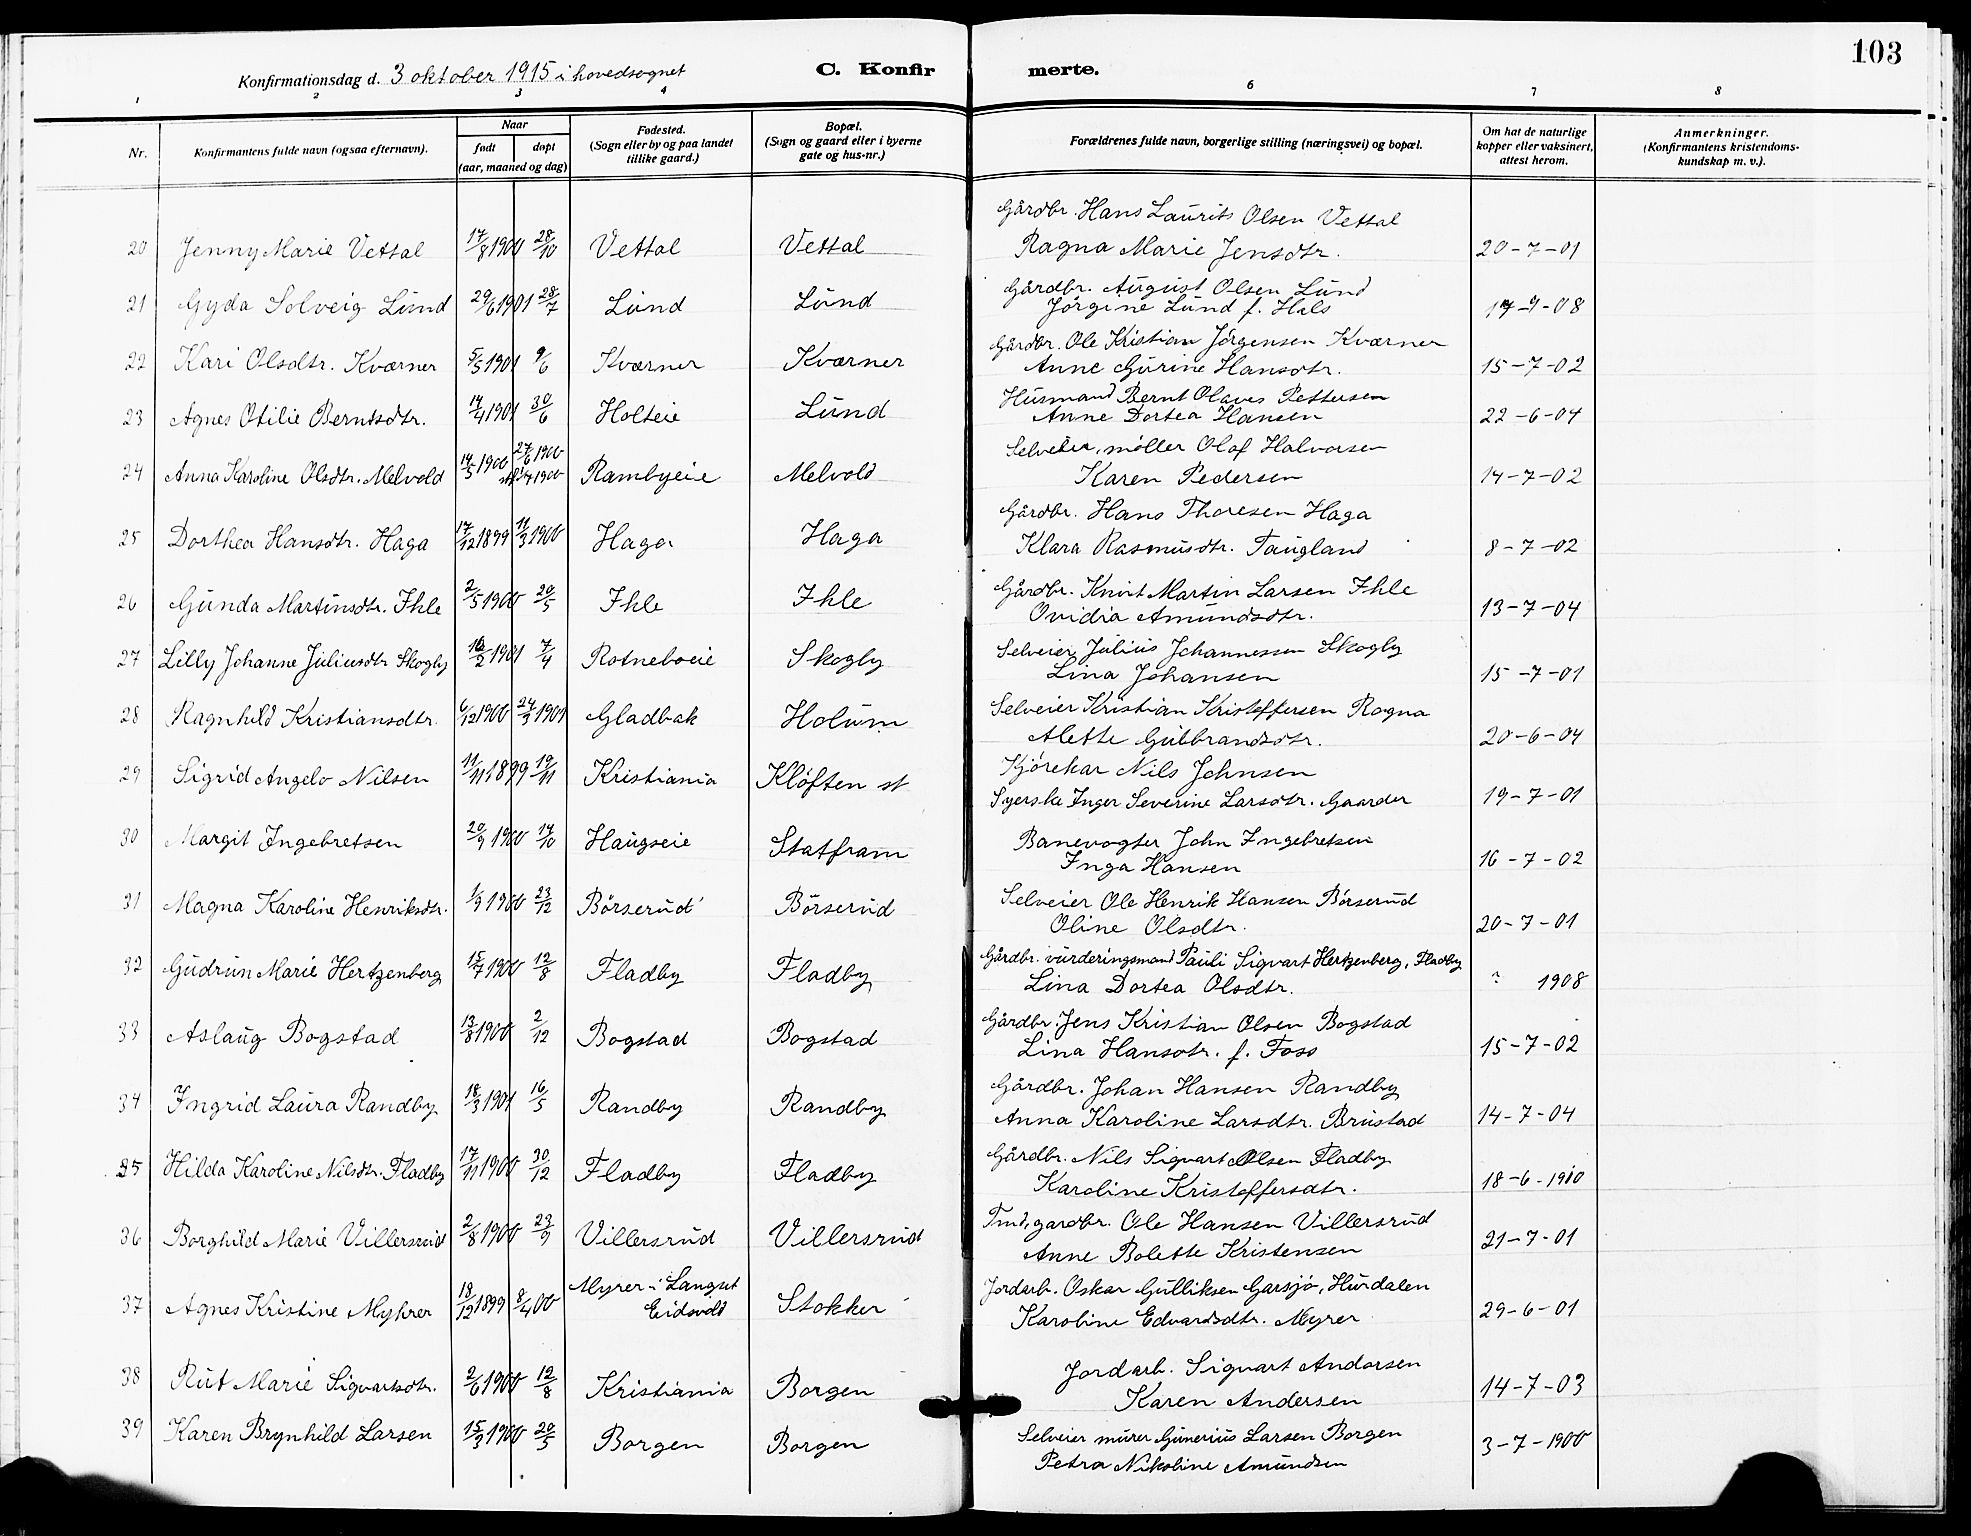 103
Konfirmationsdag d. 3 oktober 1915 i hovedsognet C. Konfirmerte.
1 2 3 4 6 7 8
Nr. Konfirmantens fulde navn (ogsaa efternavn). Naar født døpt (aar, maaned og dag) Fødested. (Sogn eller by og paa landet tillike gaard.) Bopæl. (Sogn og gaard eller i byerne gate og hus-nr.) Forældrenes fulde navn, borgerlige stilling (næringsvei) og bopæl. Om hat de naturlige kopper eller vaksinert, attest herom. Anmerkninger. (Konfirmantens kristendomskundskap m. v.).
Gårdbr. Hans Laurits Olsen Vettal
20 Jenny Marie Vettal 17/8 1900 28/10 Vettal Vettal Ragna Marie Jensdtr. 20-7-01
Gårdbr. August Olsen Lund
21 Gyda Solveig Lund 29/6 1901 28/7 Lund Lund Jörgine Lund f. Hals 17-9-08
Gårdbr. Ole Kristian Jörgensen Kværner
22 Kari Olsdtr. Kværner 5/5 1901 9/6 Kværner Kværner Anne Gurine Hansdtr. 15-7-02
Husmand Bernt Olaves Pettersen
23 Agnes Otilie Berntsdtr. 14/4 1901 30/6 Holteie Lund Anne Dortea Hansen 22-6-04
Selveier, møller Olaf Halvorsen
24 Anna Karoline Olsdtr. Melvold 14/5 1900 27/6 1900 Rambyeie Melvold Karen Pedersen 14-7-02
Gårdbr. Hans Thoresen Haga
25 Dorthea Hansdtr. Haga 17/12 1899 11/3 1900 Haga Haga Klara Rasmusdtr. Taugland 8-7-02
Gårdbr. Knut Martin Larsen Ihle
26 Gunda Martinsdtr. Ihle 2/5 1900 20/5 Ihle Ihle Ovidia Amundsdtr. 13-7-04
Selveier Julius Johannessen Skogly
27 Lilly Johanne Juliusdtr Skogly 1901 7/4 Rotneboeie Skogly Lina Johansen 15-7-01
Selveier Kristian Kristoffersen Rogna
28 Ragnhild Kristiansdtr. 6/12 1900 24/3 1901 Gladbak Holum Alette Gulbrandsdtr. 20-6-04
Kjörekar Nils Johnsen
29 Sigrid Angelo Nilsen 11/11 1899 19/11 Kristiania Kløften st Syerske Inger Severine Larsdtr. Gaarder 19-7-01
Banevogter John Ingebretsen
30 Margit Ingebretsen 20/9 1900 14/10 Haugseie Statfram Inga Hansen 16-7-02
Selveier Ole Henrik Hansen Börserud
31 Magna Karoline Henriksdtr. 1/9 1900 23/12 Börserud Börserud Oline Olsdtr. 20-7-01
Gårdbr. vurderingsmand Pauli Sigvart Hertzenberg, Fladby
32 Gudrun Marie Hertzenberg 15/7 1900 12/8 Fladby Fladby Lina Dortea Olsdtr. ? 1908
Gårdbr. Jens Kristian Olsen Bogstad
33 Aslaug Bogstad 13/8 1900 2/12 Bogstad Bogstad Lina Hansdtr. f. Foss 15-7-02
Gårdbr. Johan Hansen Randby
34 Ingrid Laura Randby 18/3 1901 16/5 Randby Randby Anna Karoline Larsdtr. Brustad 14-7-04
Gårdbr. Nils Sigvart Olsen Fladby
35 Hilda Karoline Nilsdtr. Fladby 17/11 1900 30/12 Fladby Fladby Karoline Kristoffersdtr. 18-6-1910
gardbr. Ole Hansen Villersrud
36 Borghild Marie Villersrud 2/8 1900 23/9 Villersrud Villersrud Anne Bolette Kristensen 21-7-01
Myrer i Langset Jordarb. Oskar Gulliksen Garsjö, Hurdalen
37 Agnes Kristine Myhrer 18/12 1899 8/4 00 Eidsvold Stokker Karoline Edvardsdtr. Myrer 29-6-01
Jordarb. Sigvart Andersen
38 Rut Marie Sigvartsdtr. 2/6 1900 12/8 Kristiania Borgen Karen Andersen 14-7-03
Selveier murer Gunerius Larsen Borgen
39 Karen Brynhild Larsen 15/3 1900 20/5 Borgen Borgen Petra Nikoline Amundsen 3-7-1900